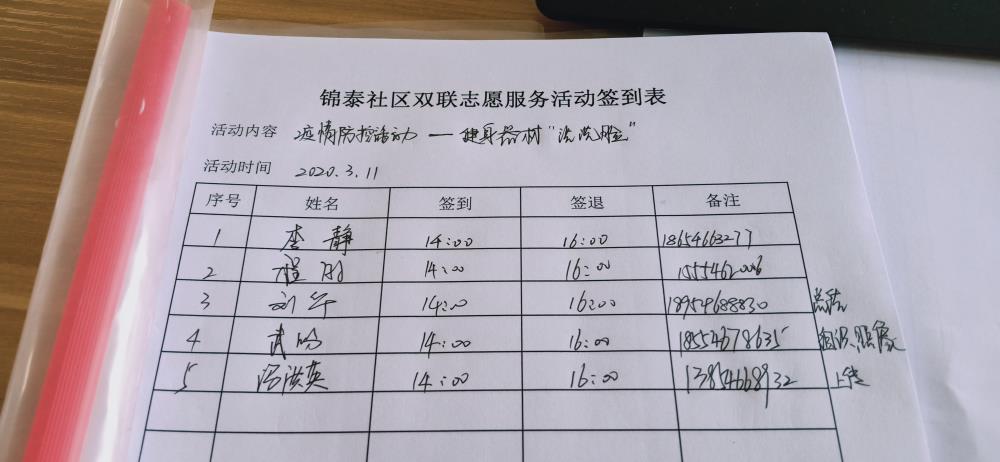 锦泰社区双联志愿服务活动签到表
活动内容 疫情防控活动 — 健身器材“洗洗脸”
活动时间 2020.3.11
序号 姓名 签到 签退 备注
1 李静 14:00 16:00 18654663277
2 程 14:00 16:00
3 刘 14:00 16:00 18954688830
4 武 14:00 16:00 18554678635 组织、照像
5 冯洪英 14:00 16:00 13854668932 上传